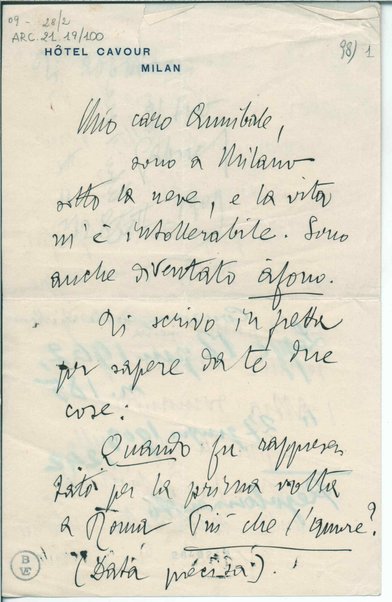 09 - 28/2
ARC. 21. 19/100
98) 1
HÔTEL CAVOUR
MILAN
Mio caro Annibale,
sono a Milano
sotto la neve, e la vita
m'è intollerabile. Sono
anche diventato àfono.
Ti scrivo in fretta
per sapere da te due
cose:
Quando fu rappresen
tato per la prima volta
a Roma Più che l'amore?
(Data precisa).